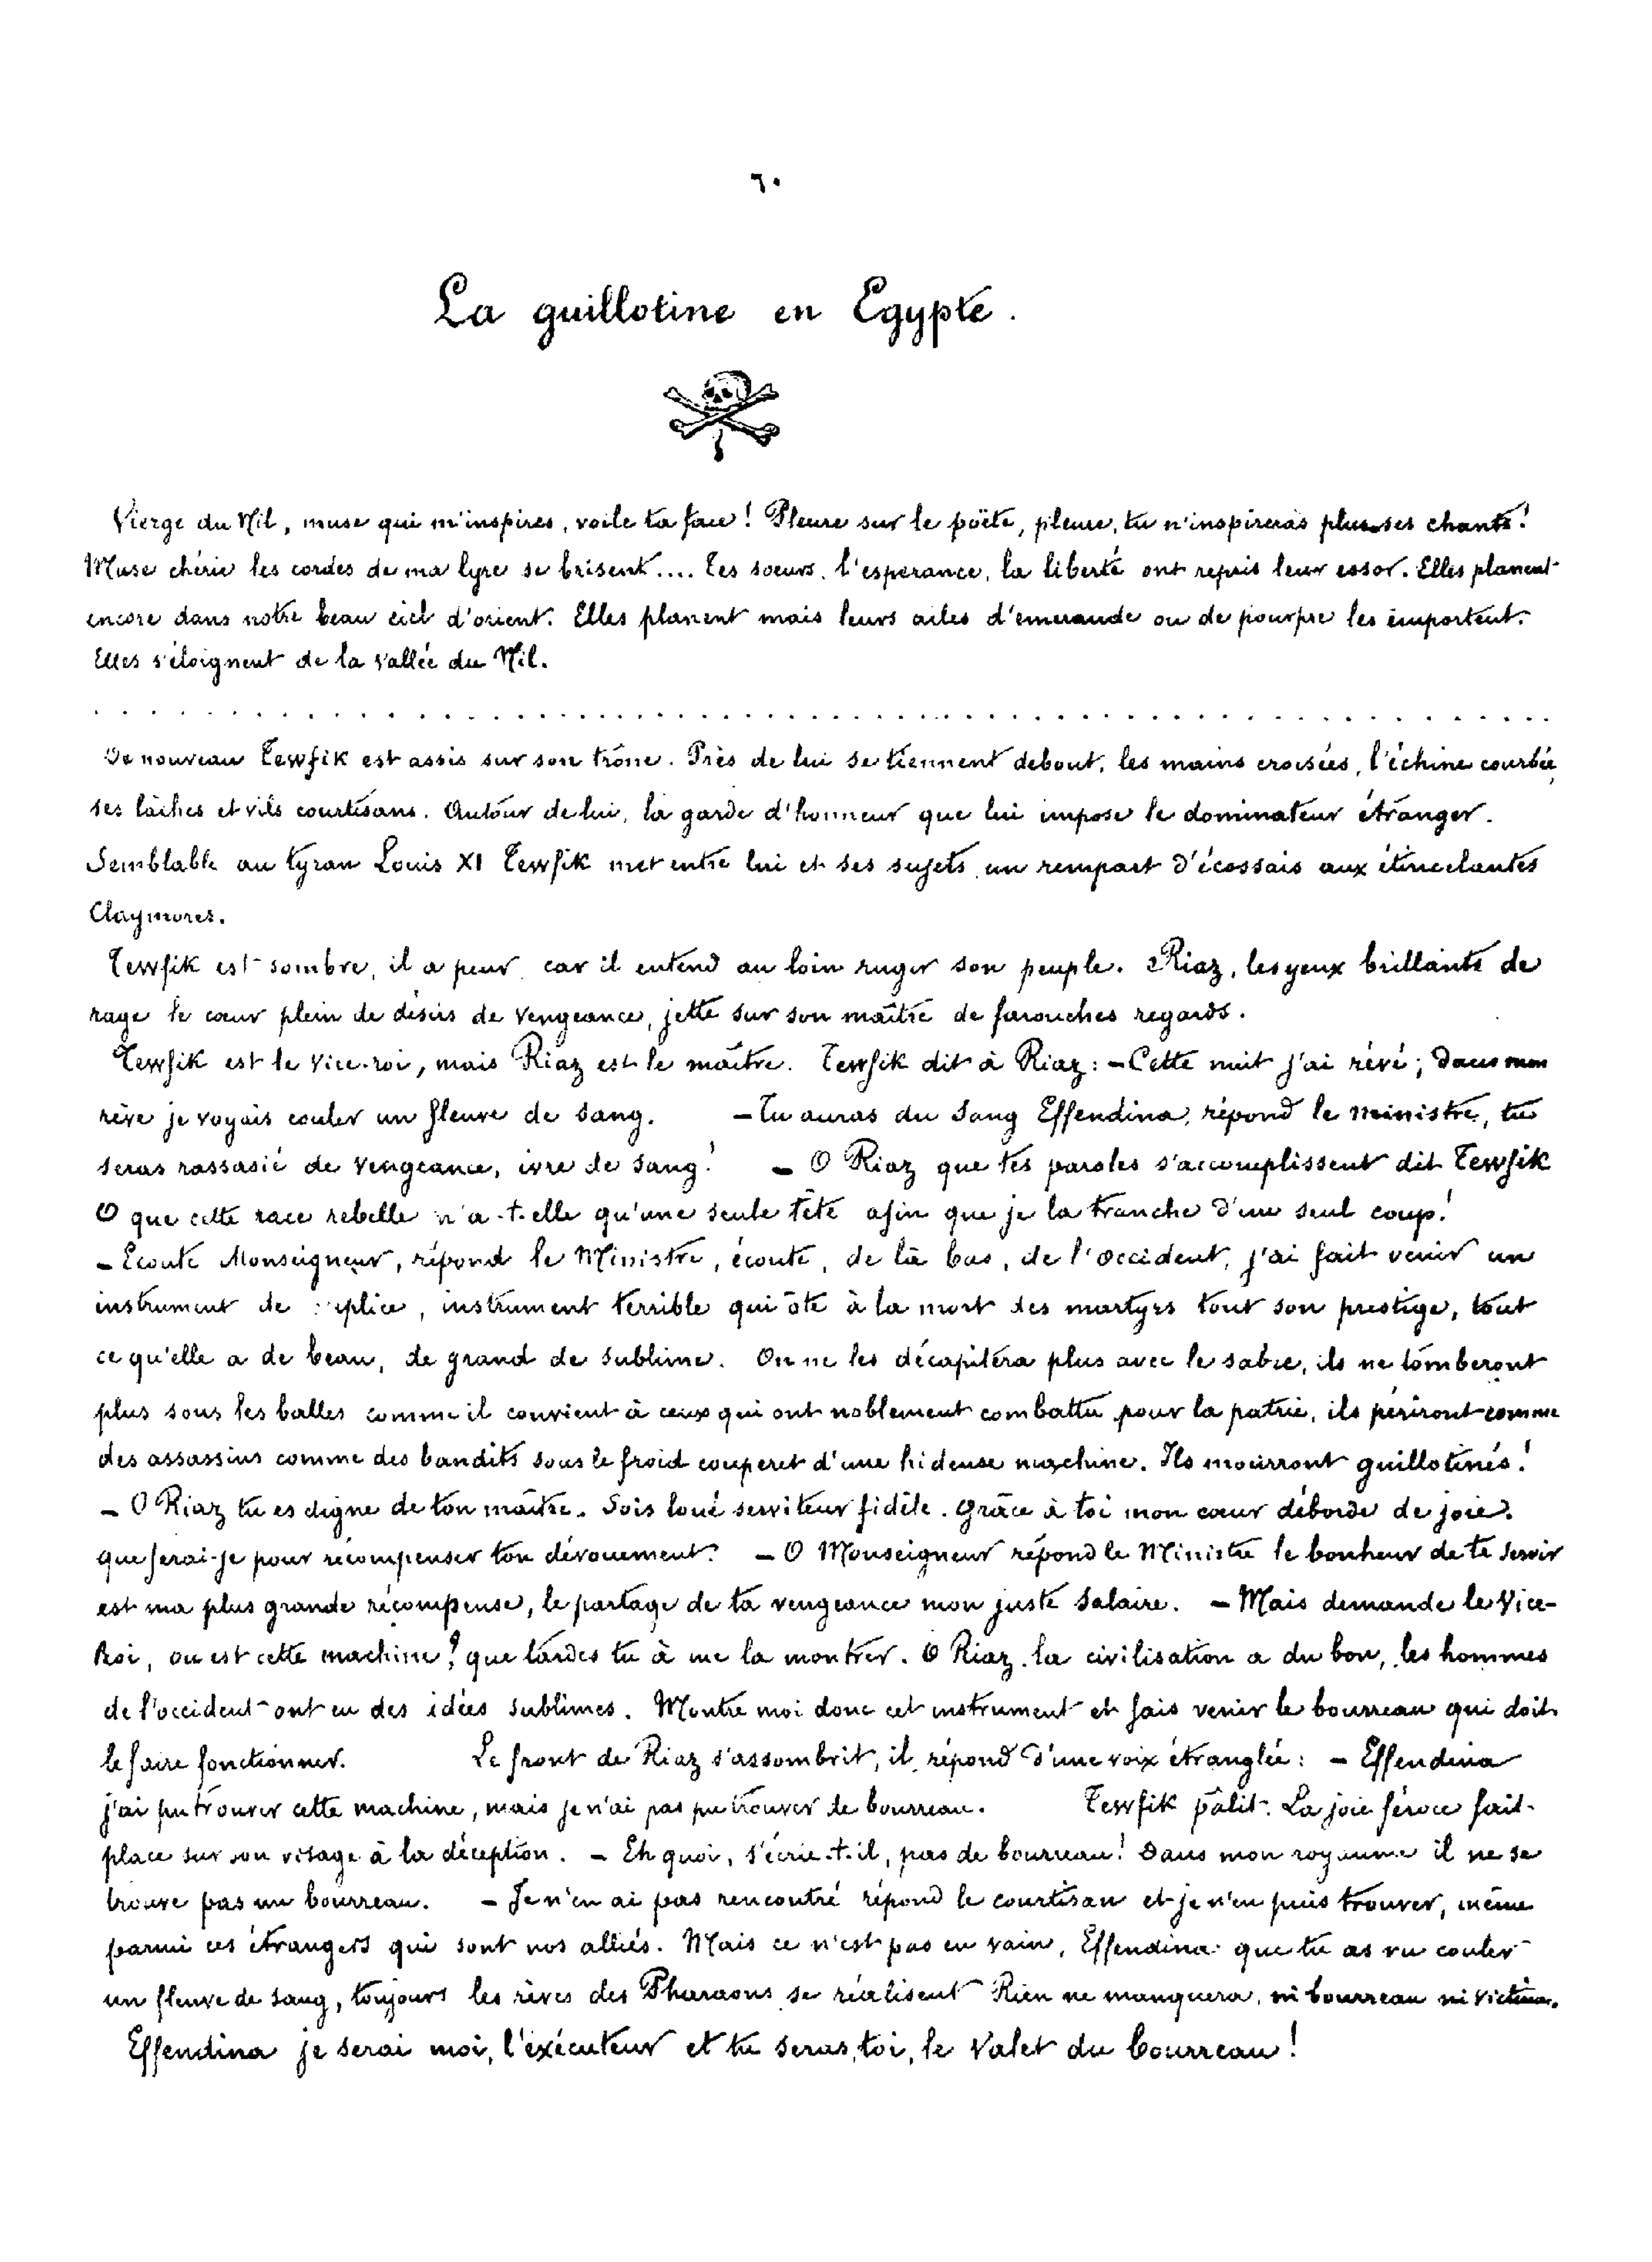 ٦٠
La guillotine en Egypte.
Vierge du Nil, muse qui m'inspires, voile ta face! Pleure sur le poëte, pleure, tu n'inspireras plus ses chants!
Muse chérie les cordes de ma lyre se brisent.... Tes soeurs, l'esperance, la liberté ont repris leur essor. Elles planent
encore dans notre beau ciel d'orient. Elles planent mais leurs ailes d'emeraude ou de pourpre les emportent.
Elles s'éloignent de la vallée du Nil.
De nouveau Tewfik est assis sur son trône. Près de lui se tiennent debout, les mains croisées, l'échine courbée,
ses lâches et vils courtisans. Autour de lui, la garde d'honneur que lui impose le dominateur étranger.
Semblable au tyran Louis XI Tewfik met entre lui et ses sujets un rempart d'écossais aux étincelantes
Claymores.
Tewfik est sombre, il a peur car il entend au loin rugir son peuple. Riaz, les yeux brillants de
rage le cœur plein de désirs de vengeance, jette sur son maître de farouches regards.
Tewfik est le vice-roi, mais Riaz est le maître. Tewfik dit à Riaz: - Cette nuit j'ai rêvé; dans mon
rêve je voyais couler un fleuve de sang. - Tu auras du sang Effendina, répond le ministre, tu
seras rassasié de vengeance, ivre de sang! - O Riaz que tes paroles s'accomplissent dit Tewfik
O que cette race rebelle n'a-t-elle qu'une seule tête afin que je la tranche d'un seul coup!
- Ecoute Monseigneur, répond le Ministre, écoute, de là bas, de l'occident, j'ai fait venir un
instrument de , instrument terrible qui ôte à la mort des martyrs tout son prestige, tout
ce qu'elle a de beau, de grand de sublime. On ne les décapitera plus avec le sabre, ils ne tomberont
plus sous les balles comme il convient à ceux qui ont noblement combattu pour la patrie, ils périront comme
des assassins comme des bandits sous le froid couperet d'une hideuse machine. Ils mourront guillotinés!
- O Riaz tu es digne de ton maître. Sois loué serviteur fidèle. Grâce à toi mon cœur déborde de joie.
que ferai-je pour récompenser ton dévouement? - O Monseigneur répond le Ministre le bonheur de te servir
est ma plus grande récompense, le partage de ta vengeance mon juste salaire. - Mais demande le Vice-
Roi, ou est cette machine? que tardes tu à me la montrer. O Riaz la civilisation a du bon, les hommes
de l'occident ont eu des idées sublimes. Montre moi donc cet instrument et fais venir le bourreau qui doit
le faire fonctionner. Le front de Riaz s'assombrit, il répond d'une voix étranglée: - Effendina
j'ai pu trouver cette machine, mais je n'ai pas pu trouver de bourreau. Tewfik pâlit. La joie féroce fait
place sur son visage à la déception. - Eh quoi, s'écrie-t-il, pas de bourreau! Dans mon royaume il ne se
trouve pas un bourreau. - Je n'en ai pas rencontré répond le courtisan et je n'en puis trouver, même
parmi ces étrangers qui sont nos alliés. Mais ce n'est pas en vain, Effendina que tu as vu couler
un fleuve de sang, toujours les rêves des Pharaons se réalisent Rien ne manquera, ni bourreau ni victime.
Effendina je serai moi, l'exécuteur et tu seras, toi, le valet du bourreau!